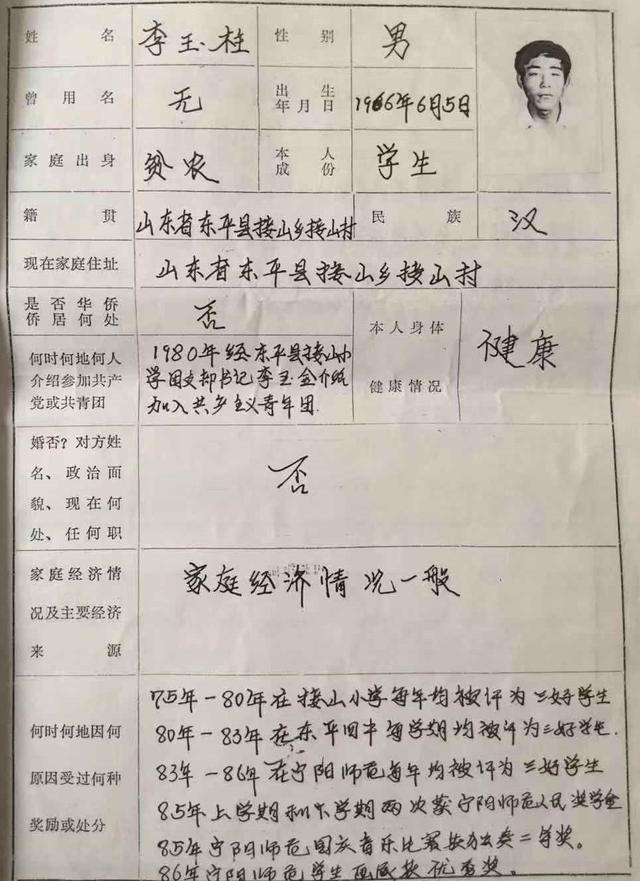 姓名 李玉柱 性别 男
曾用名 无 出生年月日 1966年6月5日
家庭出身 贫农 本人成份 学生
籍贯 山东省东平县接山乡接山村 民族 汉
现在家庭住址 山东省东平县接山乡接山村
是否华侨侨居何处 否
本人身体健康情况 健康
何时何地何人 1980年经东平县接山小
介绍参加共产 学团支部书记李玉金介绍
党或共青团 加入共产主义青年团.
婚否？对方姓
名、政治面
貌、现在何
处、任何职
否
家庭经济情
况及主要经济
来源
家庭经济情况一般
何时何地因何
原因受过何种
奖励或处分
75年-80年在接山小学每年均被评为三好学生
80年-83年在东平四中每学期均被评为三好学生.
83年-86年在宁阳师范每年均被评为三好学生
85年上学期和下学期两次获宁阳师范人民奖学金
85年宁阳师范国庆音乐比赛 二等奖.
86年宁阳师范学生 优秀奖.